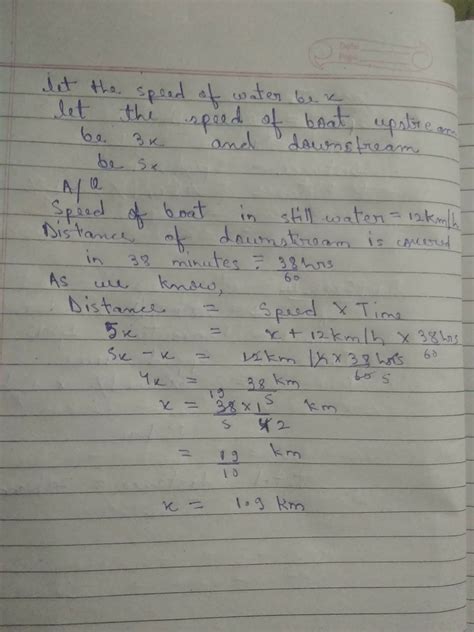 let the speed of water be x
let the speed of boat, upstream
be 3x and downstream
be 5x
A/Q
Speed of boat in still water = 12km/h
Distance of downstream is covered
in 38 minutes = 38/60 hrs
As we know,
Distance = Speed × Time
5x = x + 12km/h × 38/60 hrs
5x - x = 12km/h × 38/60 hrs 5
4x = 38/5 km
x = 19 38 × 1 / 5 4 2 km
= 19/10 km
x = 1.9 km